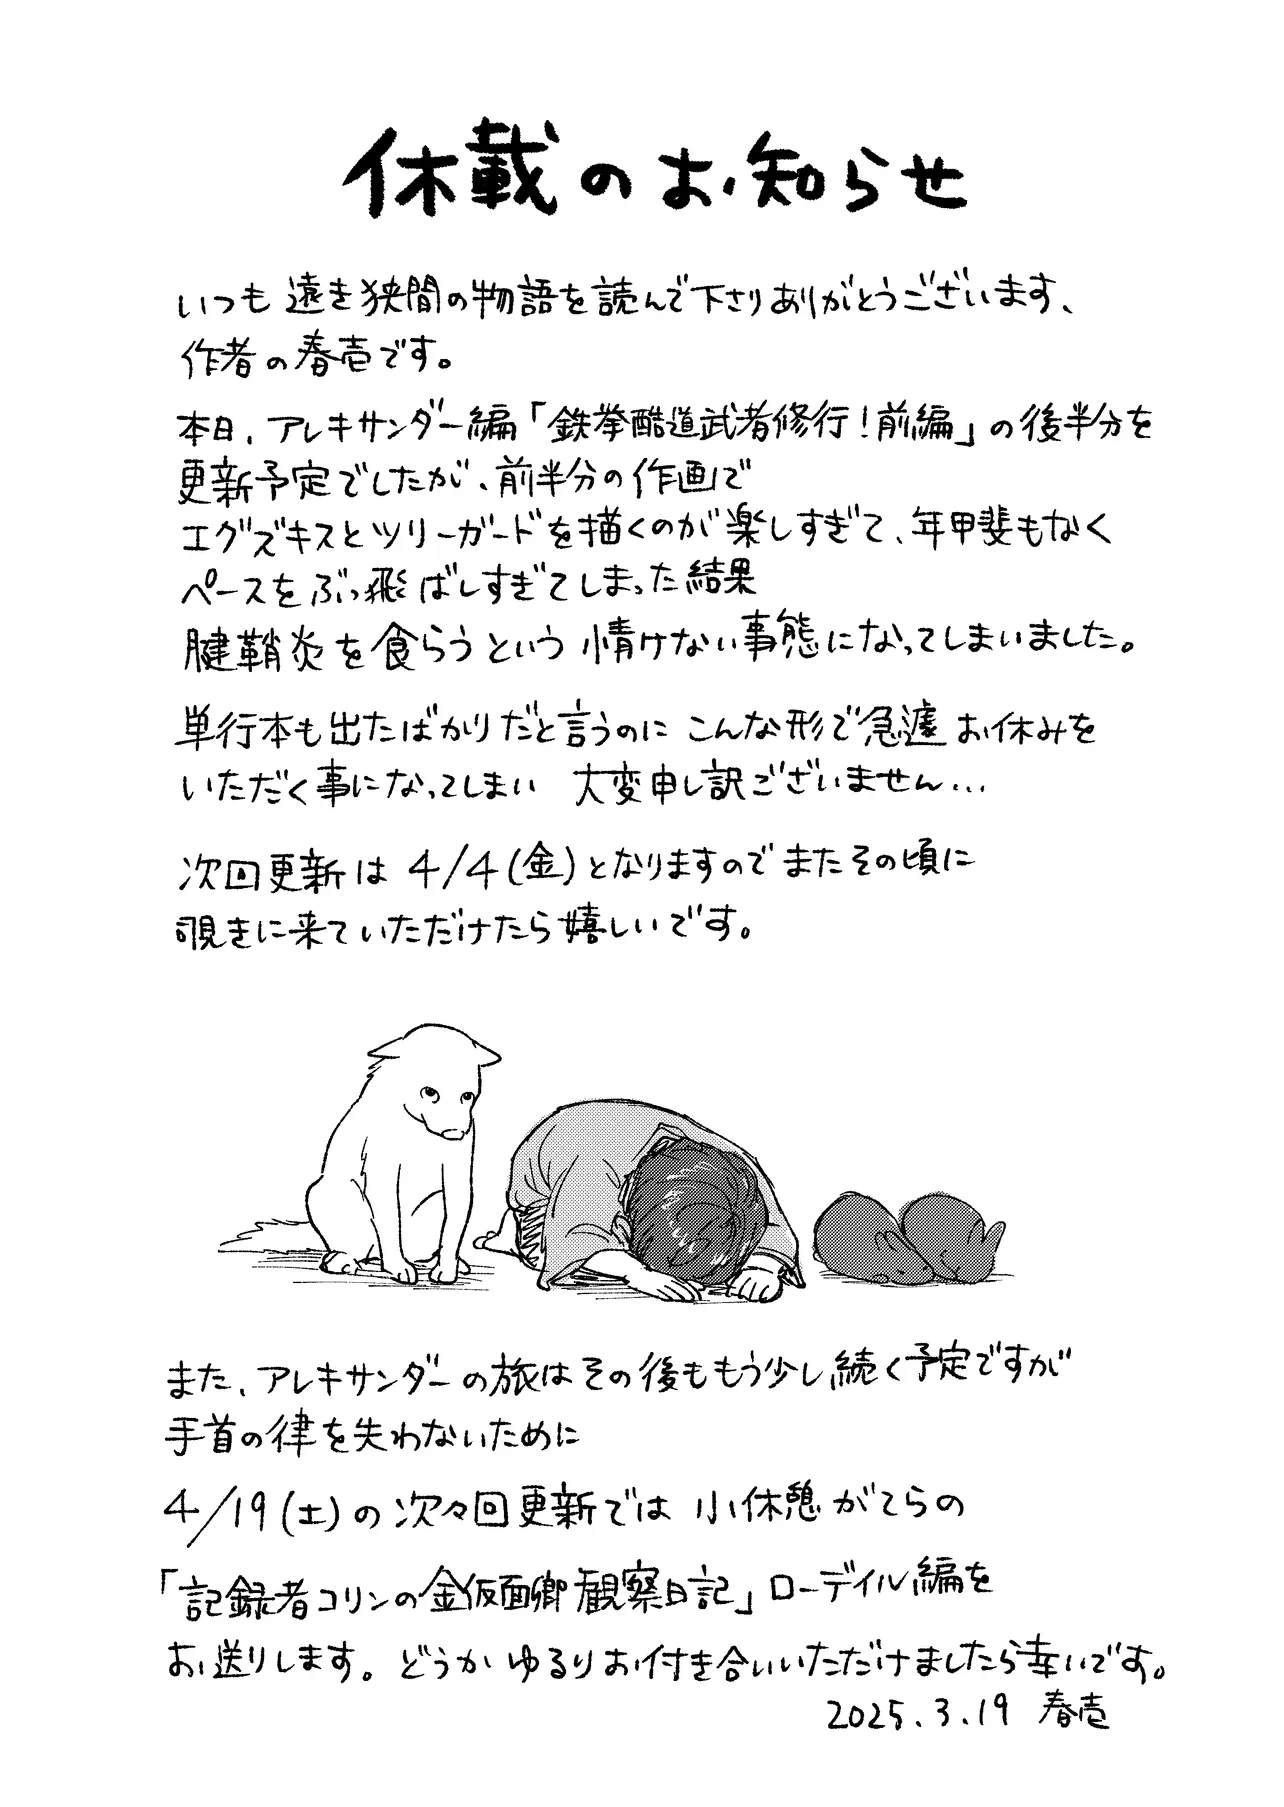 休載のお知らせ
いつも遠き狭間の物語を読んで下さりありがとうございます、
作者の春壱です。
本日、アレキサンダー編「鉄拳酷道武者修行！前編」の後半分を
更新予定でしたが、前半分の作画で
エグズキスとツリーガードを描くのが楽しすぎて、年甲斐もなく
ペースをぶっ飛ばしすぎてしまった結果
腱鞘炎を食らうという情けない事態になってしまいました。
単行本も出たばかりだと言うのにこんな形で急遽お休みを
いただく事になってしまい 大変申し訳ございません…
次回更新は4/4(金)となりますのでまたその頃に
覗きに来ていただけたら嬉しいです。
また、アレキサンダーの旅はその後ももう少し続く予定ですが
手首の律を失わないために
4/19(土)の次々回更新では 小休憩がてらの
「記録者コリンの金仮面卿観察日記」ローデイル編を
お送りします。どうかゆるりお付き合いいただけましたら幸いです。
2025.3.19 春壱